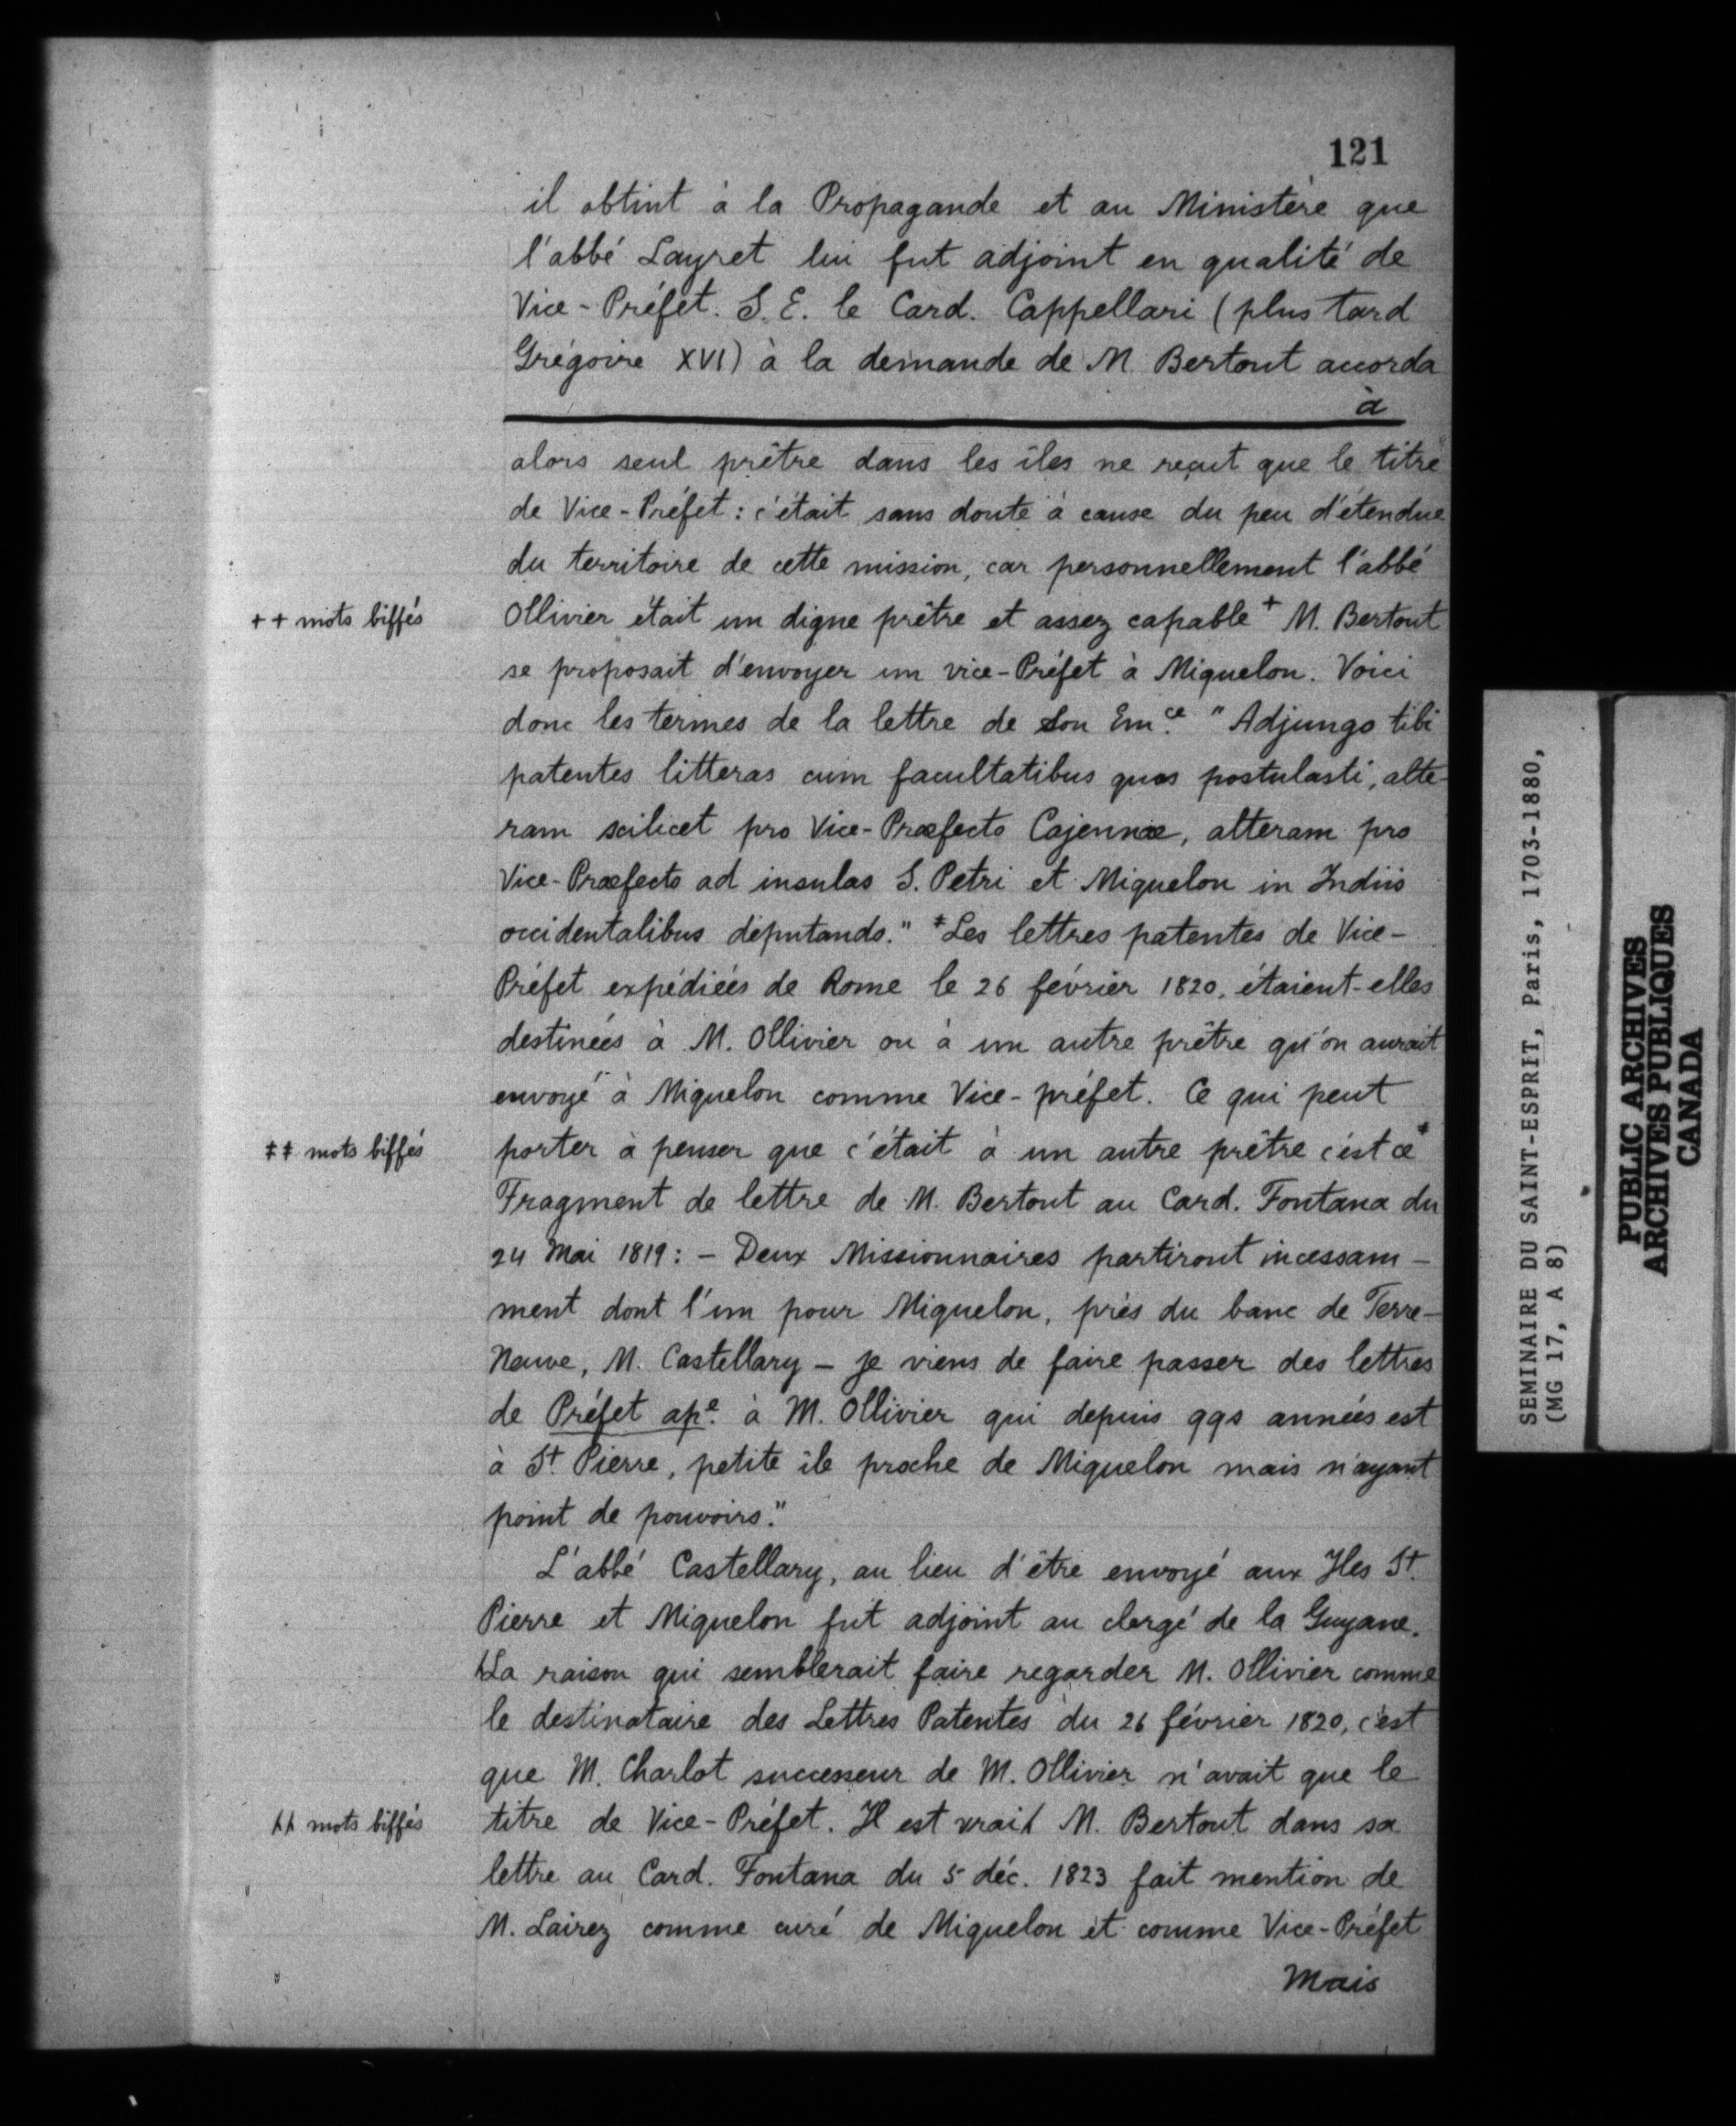 121
il obtint à la Propagande et au Ministère que
l'abbé Layret lui fut adjoint en qualité de
Vice-Préfet. S. E. le Card. Cappellari (plus tard
Grégoire XVI) à la demande de M. Bertout accorda
à
alors seul prêtre dans les îles ne reçut que le titre
de Vice-Préfet : c'était sans doute à cause du peu d'étendue
du territoire de cette mission, car personnellement l'abbé
++ mots biffés
Ollivier était un digne prêtre et assez capable + M. Bertout
se proposait d'envoyer un vice-Préfet à Miquelon. Voici
donc les termes de la lettre de Son Em.ce "Adjungo tibi
patentes litteras cum facultatibus quas postulasti, alte-
ram scilicet pro Vice-Præfecto Cajennæ, alteram pro
Vice-Præfecto ad insulas S. Petri et Miquelon in Indiis
occidentalibus deputando." ‡ Les lettres patentes de Vice-
Préfet expédiées de Rome le 26 février 1820, étaient-elles
destinées à M. Ollivier ou à un autre prêtre qu'on aurait
envoyé à Miquelon comme Vice-préfet. Ce qui peut
‡‡ mots biffés
porter à penser que c'était à un autre prêtre c'est ce ‡
Fragment de lettre de M. Bertout au Card. Fontana du
24 Mai 1819 : - Deux Missionnaires partiront incessam-
ment dont l'un pour Miquelon, près du banc de Terre-
Neuve, M. Castellary - je viens de faire passer des lettres
de Préfet ap.e à M. Ollivier qui depuis qqs années est
à St. Pierre, petite île proche de Miquelon mais n'ayant
point de pouvoirs."
L'abbé Castellary, au lieu d'être envoyé aux Iles St.
Pierre et Miquelon fut adjoint au clergé de la Guyane.
La raison qui semblerait faire regarder M. Ollivier comme
le destinataire des Lettres Patentes du 26 février 1820, c'est
que M. Charlot successeur de M. Ollivier n'avait que le
mots biffés
titre de Vice-Préfet. Il est vrai M. Bertout dans sa
lettre au Card. Fontana du 5 déc. 1823 fait mention de
M. Lairez comme curé de Miquelon et comme Vice-Préfet
Mais
SEMINAIRE DU SAINT-ESPRIT, Paris, 1703-1880,
(MG 17, A 8)
PUBLIC ARCHIVES
ARCHIVES PUBLIQUES
CANADA